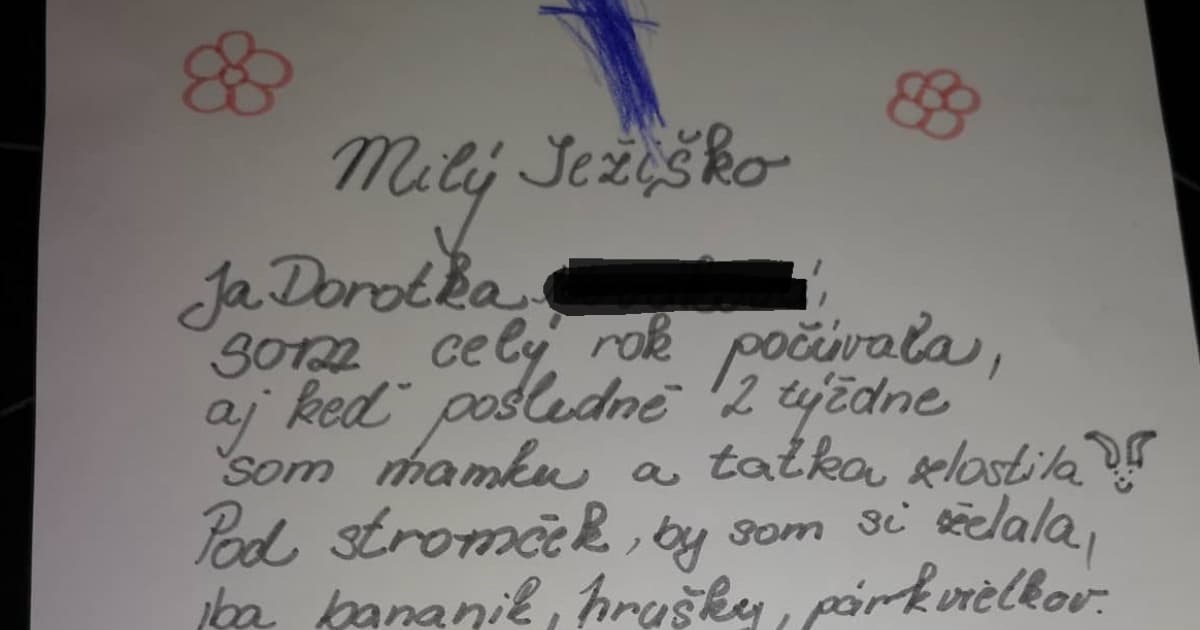 Milý Ježiško
Ja Dorotka
som celý rok počúvala,
aj keď posledné 2 týždne
som mamku a taťka zlostila
Pod stromček, by som si želala,
iba bananik, hrušky, pár kvietkov.